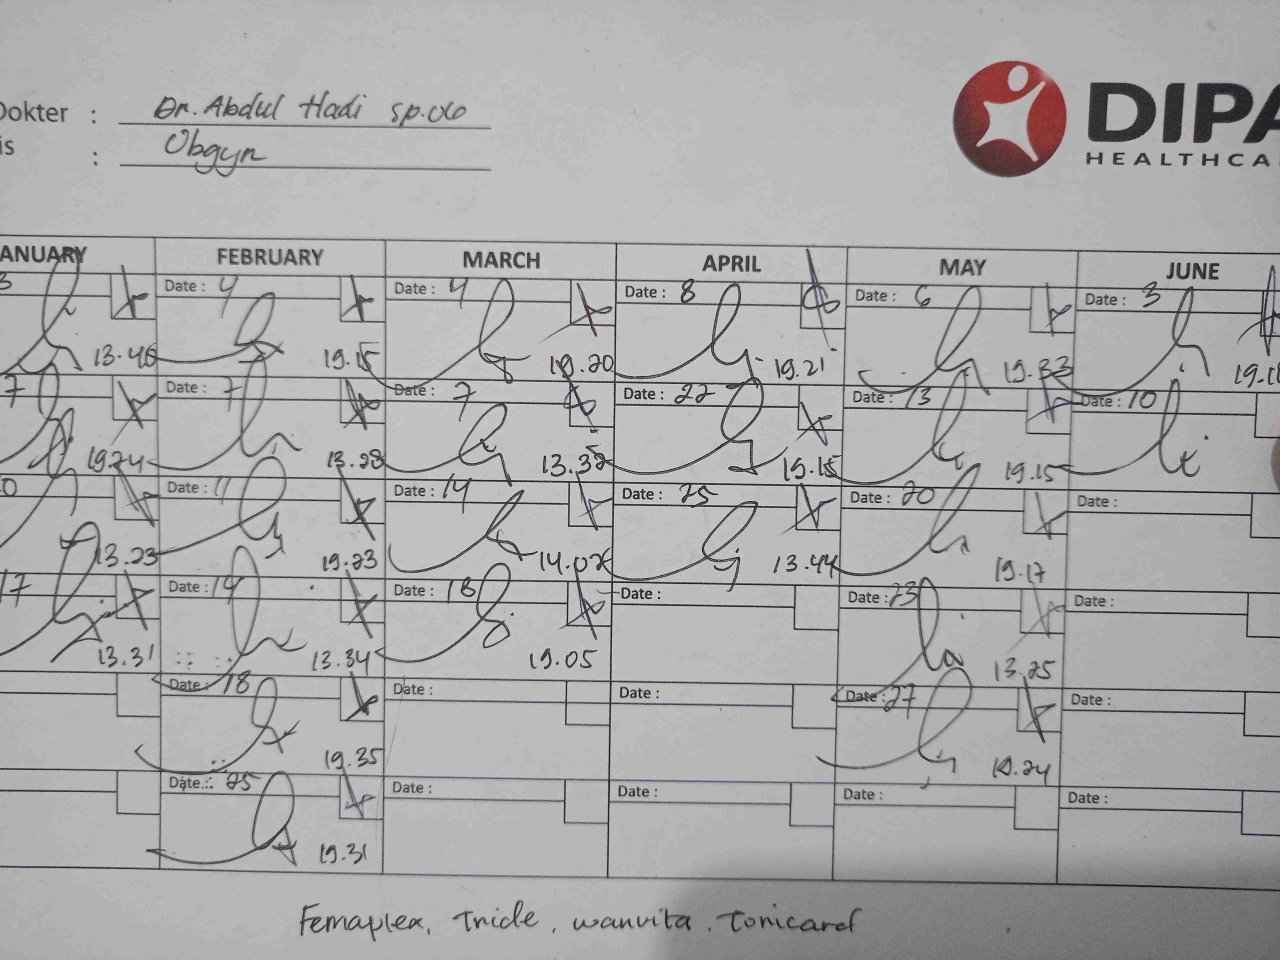 Dokter : Dr. Abdul Hadi sp.OG
is : Obgyn
DIPA
HEALTHCA
ANUARY FEBRUARY MARCH APRIL MAY JUNE
3 Date : 4 Date : 4 Date : 8 Date : 6 Date : 3
13.46 19.15 19.20 19.21 19.33
7 Date : 7 Date : 7 Date : 22 Date : 13 Date : 10
19.24 13.28 13.32 19.15 19.15
0 Date : 11 Date : 14 Date : 25 Date : 20 Date :
13.23 19.23 14.02 13.44 19.17
17 Date : 14 Date : 18 Date : Date : 23 Date :
13.31 13.34 19.05 13.25
Date : 18 Date : Date : Date : 27 Date :
19.35 19.24
Date : 25 Date : Date : Date : Date :
19.31
Femaplex, Tricle, wanvita, Tonicard